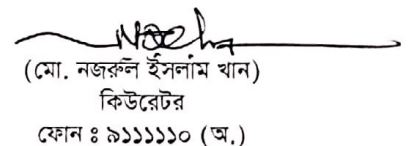 (মো. নজরুল ইসলাম খান)
কিউরেটর
ফোন ঃ ৯১১১১১০ (অ.)